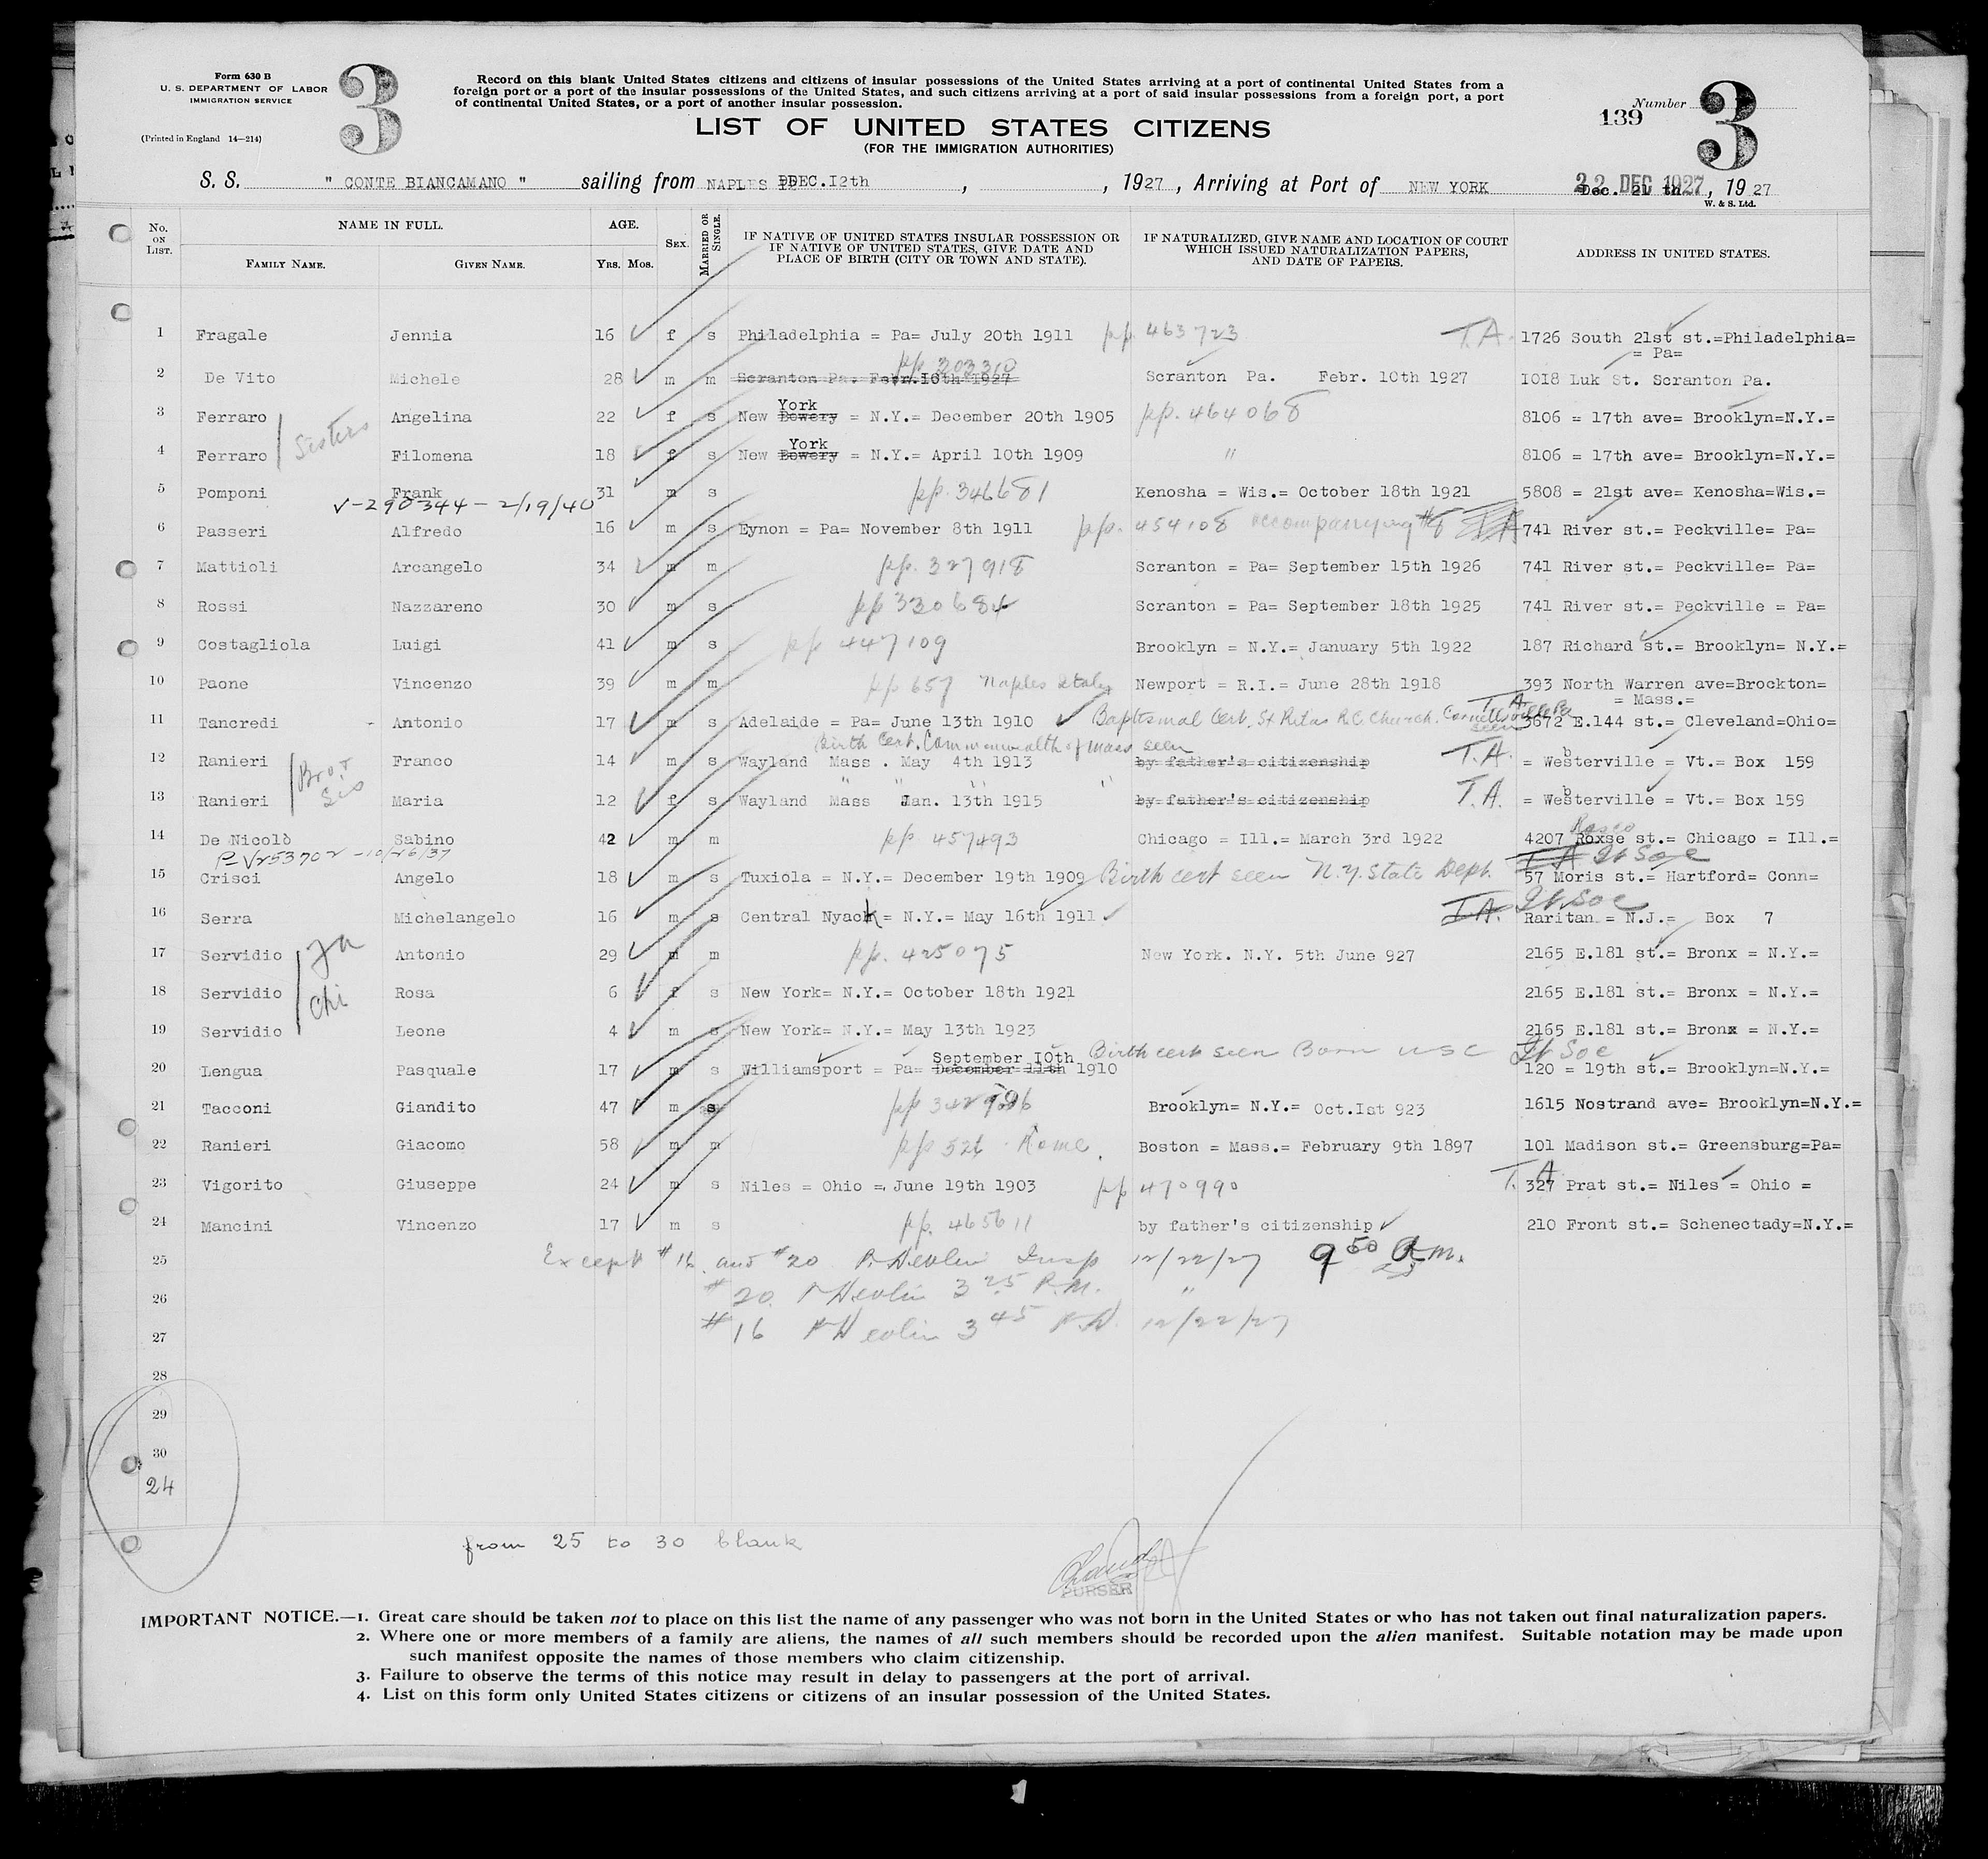 Form 630 B
U. S. DEPARTMENT OF LABOR
IMMIGRATION SERVICE
(Printed in England 14—214)
3
Record on this blank United States citizens and citizens of insular possessions of the United States arriving at a port of continental United States from a
foreign port or a port of the insular possessions of the United States, and such citizens arriving at a port of said insular possessions from a foreign port, a port
of continental United States, or a port of another insular possession.
LIST OF UNITED STATES CITIZENS
(FOR THE IMMIGRATION AUTHORITIES)
Number 139
3
S. S. " CONTE BIANCAMANO " sailing from NAPLES DEC.I2th , , 1927 , Arriving at Port of NEW YORK Dec. 21 th , 19 27
22 DEC 1927
W. & S. Ltd.
No. ON LIST. NAME IN FULL. FAMILY NAME. GIVEN NAME. AGE. YRS. MOS. SEX. MARRIED OR SINGLE. IF NATIVE OF UNITED STATES INSULAR POSSESSION OR IF NATIVE OF UNITED STATES, GIVE DATE AND PLACE OF BIRTH (CITY OR TOWN AND STATE). IF NATURALIZED, GIVE NAME AND LOCATION OF COURT WHICH ISSUED NATURALIZATION PAPERS, AND DATE OF PAPERS. ADDRESS IN UNITED STATES.
1 Fragale Jennia 16 f s Philadelphia = Pa= July 20th 1911 pp. 463723 T.A. 1726 South 21st st.=Philadelphia=
= Pa=
pp 303310
2 De Vito Michele 28 m m Scranton Pa. Febr.10th 1927 Scranton Pa. Febr. 10th 1927 I0I8 Luk St. Scranton Pa.
York
3 Ferraro Angelina 22 f s New Bowery = N.Y.= December 20th 1905 pp. 464068 8106 = 17th ave= Brooklyn=N.Y.=
Sisters
York
4 Ferraro Filomena 18 f s New Bowery = N.Y.= April 10th 1909 " 8106 = 17th ave= Brooklyn=N.Y.=
5 Pomponi Frank 31 m s pp. 346681 Kenosha = Wis.= October 18th 1921 5808 = 21st ave= Kenosha=Wis.=
V-290344 - 2/19/40
6 Passeri Alfredo 16 m s Eynon = Pa= November 8th 1911 pp. 454108 accompanying #8 TA 741 River st.= Peckville= Pa=
7 Mattioli Arcangelo 34 m m pp. 327918 Scranton = Pa= September 15th 1926 741 River st.= Peckville= Pa=
8 Rossi Nazzareno 30 m s pp 330684 Scranton = Pa= September 18th 1925 741 River st.= Peckville = Pa=
9 Costagliola Luigi 41 m s pp 447109 Brooklyn = N.Y.= January 5th 1922 187 Richard st.= Brooklyn= N.Y.=
10 Paone Vincenzo 39 m m pp 657 Naples Italy Newport = R.I.= June 28th 1918 393 North Warren ave=Brockton=
= Mass.=
T.A.
11 Tancredi - Antonio 17 m s Adelaide = Pa= June 13th 1910 Baptismal Cert. St Ritas R.C. Church. Connellsville Pa seen 3672 E.144 st.= Cleveland=Ohio=
Birth Cert. Commonwealth of Mass seen
12 Ranieri Franco 14 m s Wayland Mass . May 4th 1913 by father's citizenship T.A. = Websterville = Vt.= Box 159
Bro & Sis
13 Ranieri Maria 12 f s Wayland Mass Jan. 13th 1915 " by father's citizenship T.A. = Websterville = Vt.= Box 159
14 De Nicolò Sabino 42 m m pp. 457493 Chicago = Ill.= March 3rd 1922 4207 Roxse st.= Chicago = Ill.=
Rosco
T A It Soc
15 Crisci Angelo 18 m s Tuxiola = N.Y.= December 19th 1909 Birth cert seen N.Y. State Dept. 57 Moris st.= Hartford= Conn=
16 Serra Michelangelo 16 m s Central Nyack = N.Y.= May 16th 1911 T.A. It Soc Raritan = N.J.= Box 7
17 Servidio Antonio 29 m m pp. 425075 New York. N.Y. 5th June 927 2165 E.181 st.= Bronx = N.Y.=
Fa
18 Servidio Rosa 6 f s New York= N.Y.= October 18th 1921 2165 E.181 st.= Bronx = N.Y.=
Chi
19 Servidio Leone 4 m s New York= N.Y.= May 13th 1923 2165 E.181 st.= Bronx = N.Y.=
September I0th Birth cert seen Born USC It Soc
20 Lengua Pasquale 17 m s Williamsport = Pa= December 11th 1910 120 = 19th st.= Brooklyn=N.Y.=
21 Tacconi Giandito 47 m s Brooklyn= N.Y.= Oct.Ist 923 1615 Nostrand ave= Brooklyn=N.Y.=
22 Ranieri Giacomo 58 m m pp 526 Rome. Boston = Mass.= February 9th 1897 101 Madison st.= Greensburg=Pa=
23 Vigorito Giuseppe 24 m s Niles = Ohio = June 19th 1903 pp 470990 T.A 327 Prat st.= Niles = Ohio =
24 Mancini Vincenzo 17 m s pp. 465611 by father's citizenship 210 Front st.= Schenectady=N.Y.=
25 Except #16 and #20 P. Hevlin Insp 12/22/27 9 50 A.M.
26 #20. P Hevlin 3 25 P.M. "
27 #16 P Hevlin 3 45 P.M. 12/22/27
28
29
30
24
from 25 to 30 blank
PURSER
IMPORTANT NOTICE.—1. Great care should be taken not to place on this list the name of any passenger who was not born in the United States or who has not taken out final naturalization papers.
2. Where one or more members of a family are aliens, the names of all such members should be recorded upon the alien manifest. Suitable notation may be made upon
such manifest opposite the names of those members who claim citizenship.
3. Failure to observe the terms of this notice may result in delay to passengers at the port of arrival.
4. List on this form only United States citizens or citizens of an insular possession of the United States.